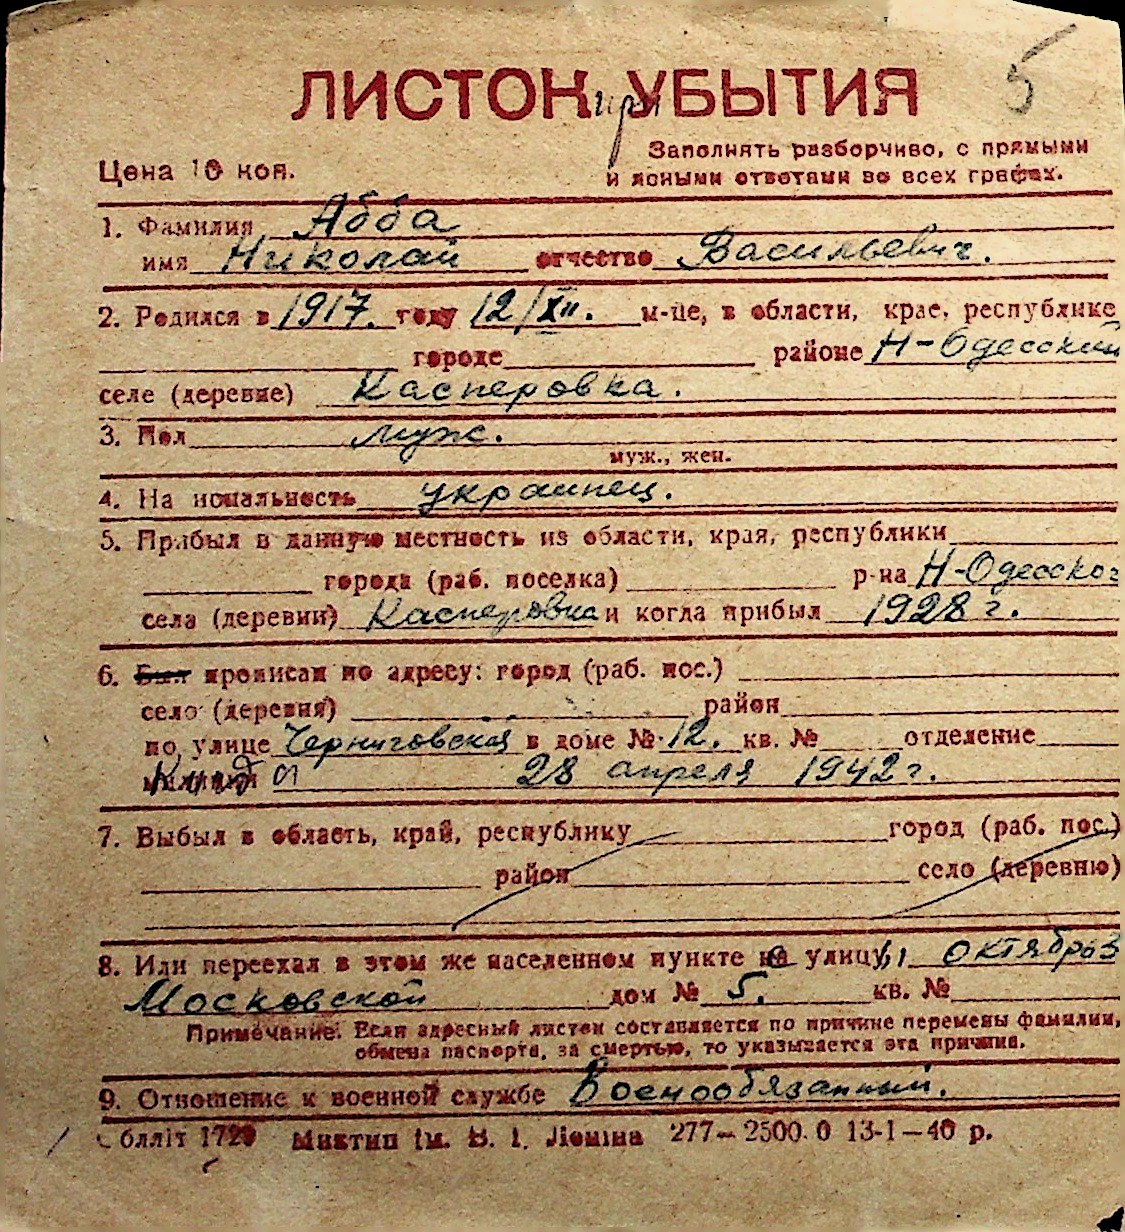 5
ЛИСТОК при УБЫТИЯ
Заполнять разборчиво, с прямыми
Цена 10 коп.
и ясными ответами во всех графах.
1. Фамилия Абба
имя Николай отчество Васильевич.
2. Родился в 1917. году 12/XII. м-це, в области, крае, республике
городе районе Н-Одесский
селе (деревне) Касперовка.
3. Пол муж.
муж., жен.
4. На иональность украинец.
5. Прибыл в данную местность из области, края, республики
города (раб. поселка) р-на Н-Одесског
села (деревни) Касперовка и когда прибыл 1928 г.
6. Был прописан по адресу: город (раб. пос.)
село (деревня) район
по улице Черниговская в доме № 12. кв. № отделение
милиции 28 апреля 1942 г.
7. Выбыл в область, край, республику город (раб. пос.)
район село (деревню)
8. Или переехал в этом же населенном пункте улицу октября 3
Московской дом № 5. кв. №
Примечание: Если адресный листок составляется по причине перемены фамилии,
обмена паспорта, за смертью, то указывается эта причина.
9. Отношение к военной службе Военообязанный.
Облліт 1729 Миктип ім. В. І. Леніна 277—2500.0 13-1—40 р.